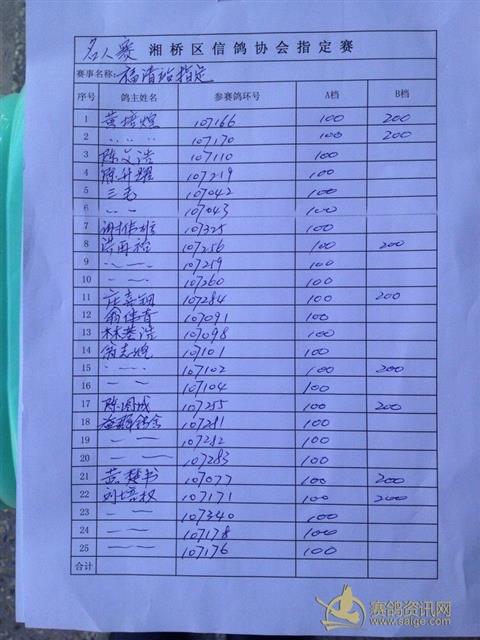 名人赛 湘桥区信鸽协会指定赛
赛事名称: 福清站指定
序号 鸽主姓名 参赛鸽环号 A档 B档
1 黄培煌 107166 100 200
2 〃 〃 〃 107170 100 200
3 陈文浩 107110 100
4 陈升耀 107219 100
5 三毛 107042 100
6 〃 — 107043 100
7 谢伟 107325 100
8 洪再裕 107256 100 200
9 〃 — 〃 107259 100
10 〃 — 〃 107260 100
11 107284 100 200
12 翁伟青 107091 100
13 林基浩 107098 100
14 翁志 107101 100
15 〃 — 〃 107102 100 200
16 — — 107104 100
17 陈周成 107255 100 200
18 107281 100
19 — — 107282 100
20 — — 107283 100
21 黄楚书 107077 100 200
22 刘培权 107171 100 200
23 — — 107340 100
24 — — 107178 100
25 — — 107176 100
合计
赛鸽资讯网
www.saige.com